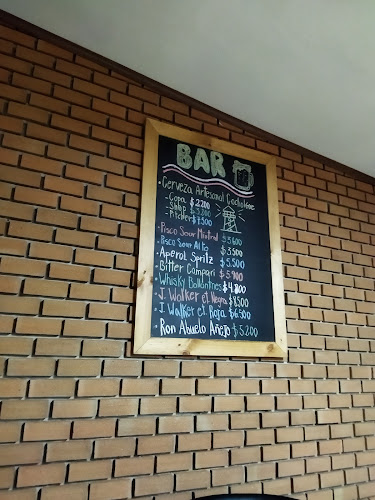 BAR
• Cerveza Artesanal
- Copa $2.200
- Shop $3.200
- Pitcher $7.500
• Pisco Sour $5.600
• Pisco Sour Alto $3.500
• Aperol Spritz $5.500
• Bitter Campari $5.900
• Whisky Ballantines
• J. Walker et. Negra $8.500
• J. Walker et. Roja $6.500
• Ron Abuelo Añejo $5.200